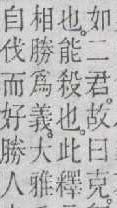 如二君故曰克
也能殺也此釋
相勝爲義大雅
自伐而好勝人